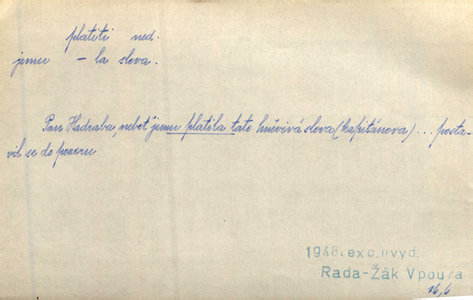 platiti ned.
jemu – la slova.
Pan Hadraba, neboť jemu platila tato hněvivá slova (kapitánova) ... posta-
vil se do pozoru.
1948, exc. uvyd.
Rada-Žák, Vpoura
16,6